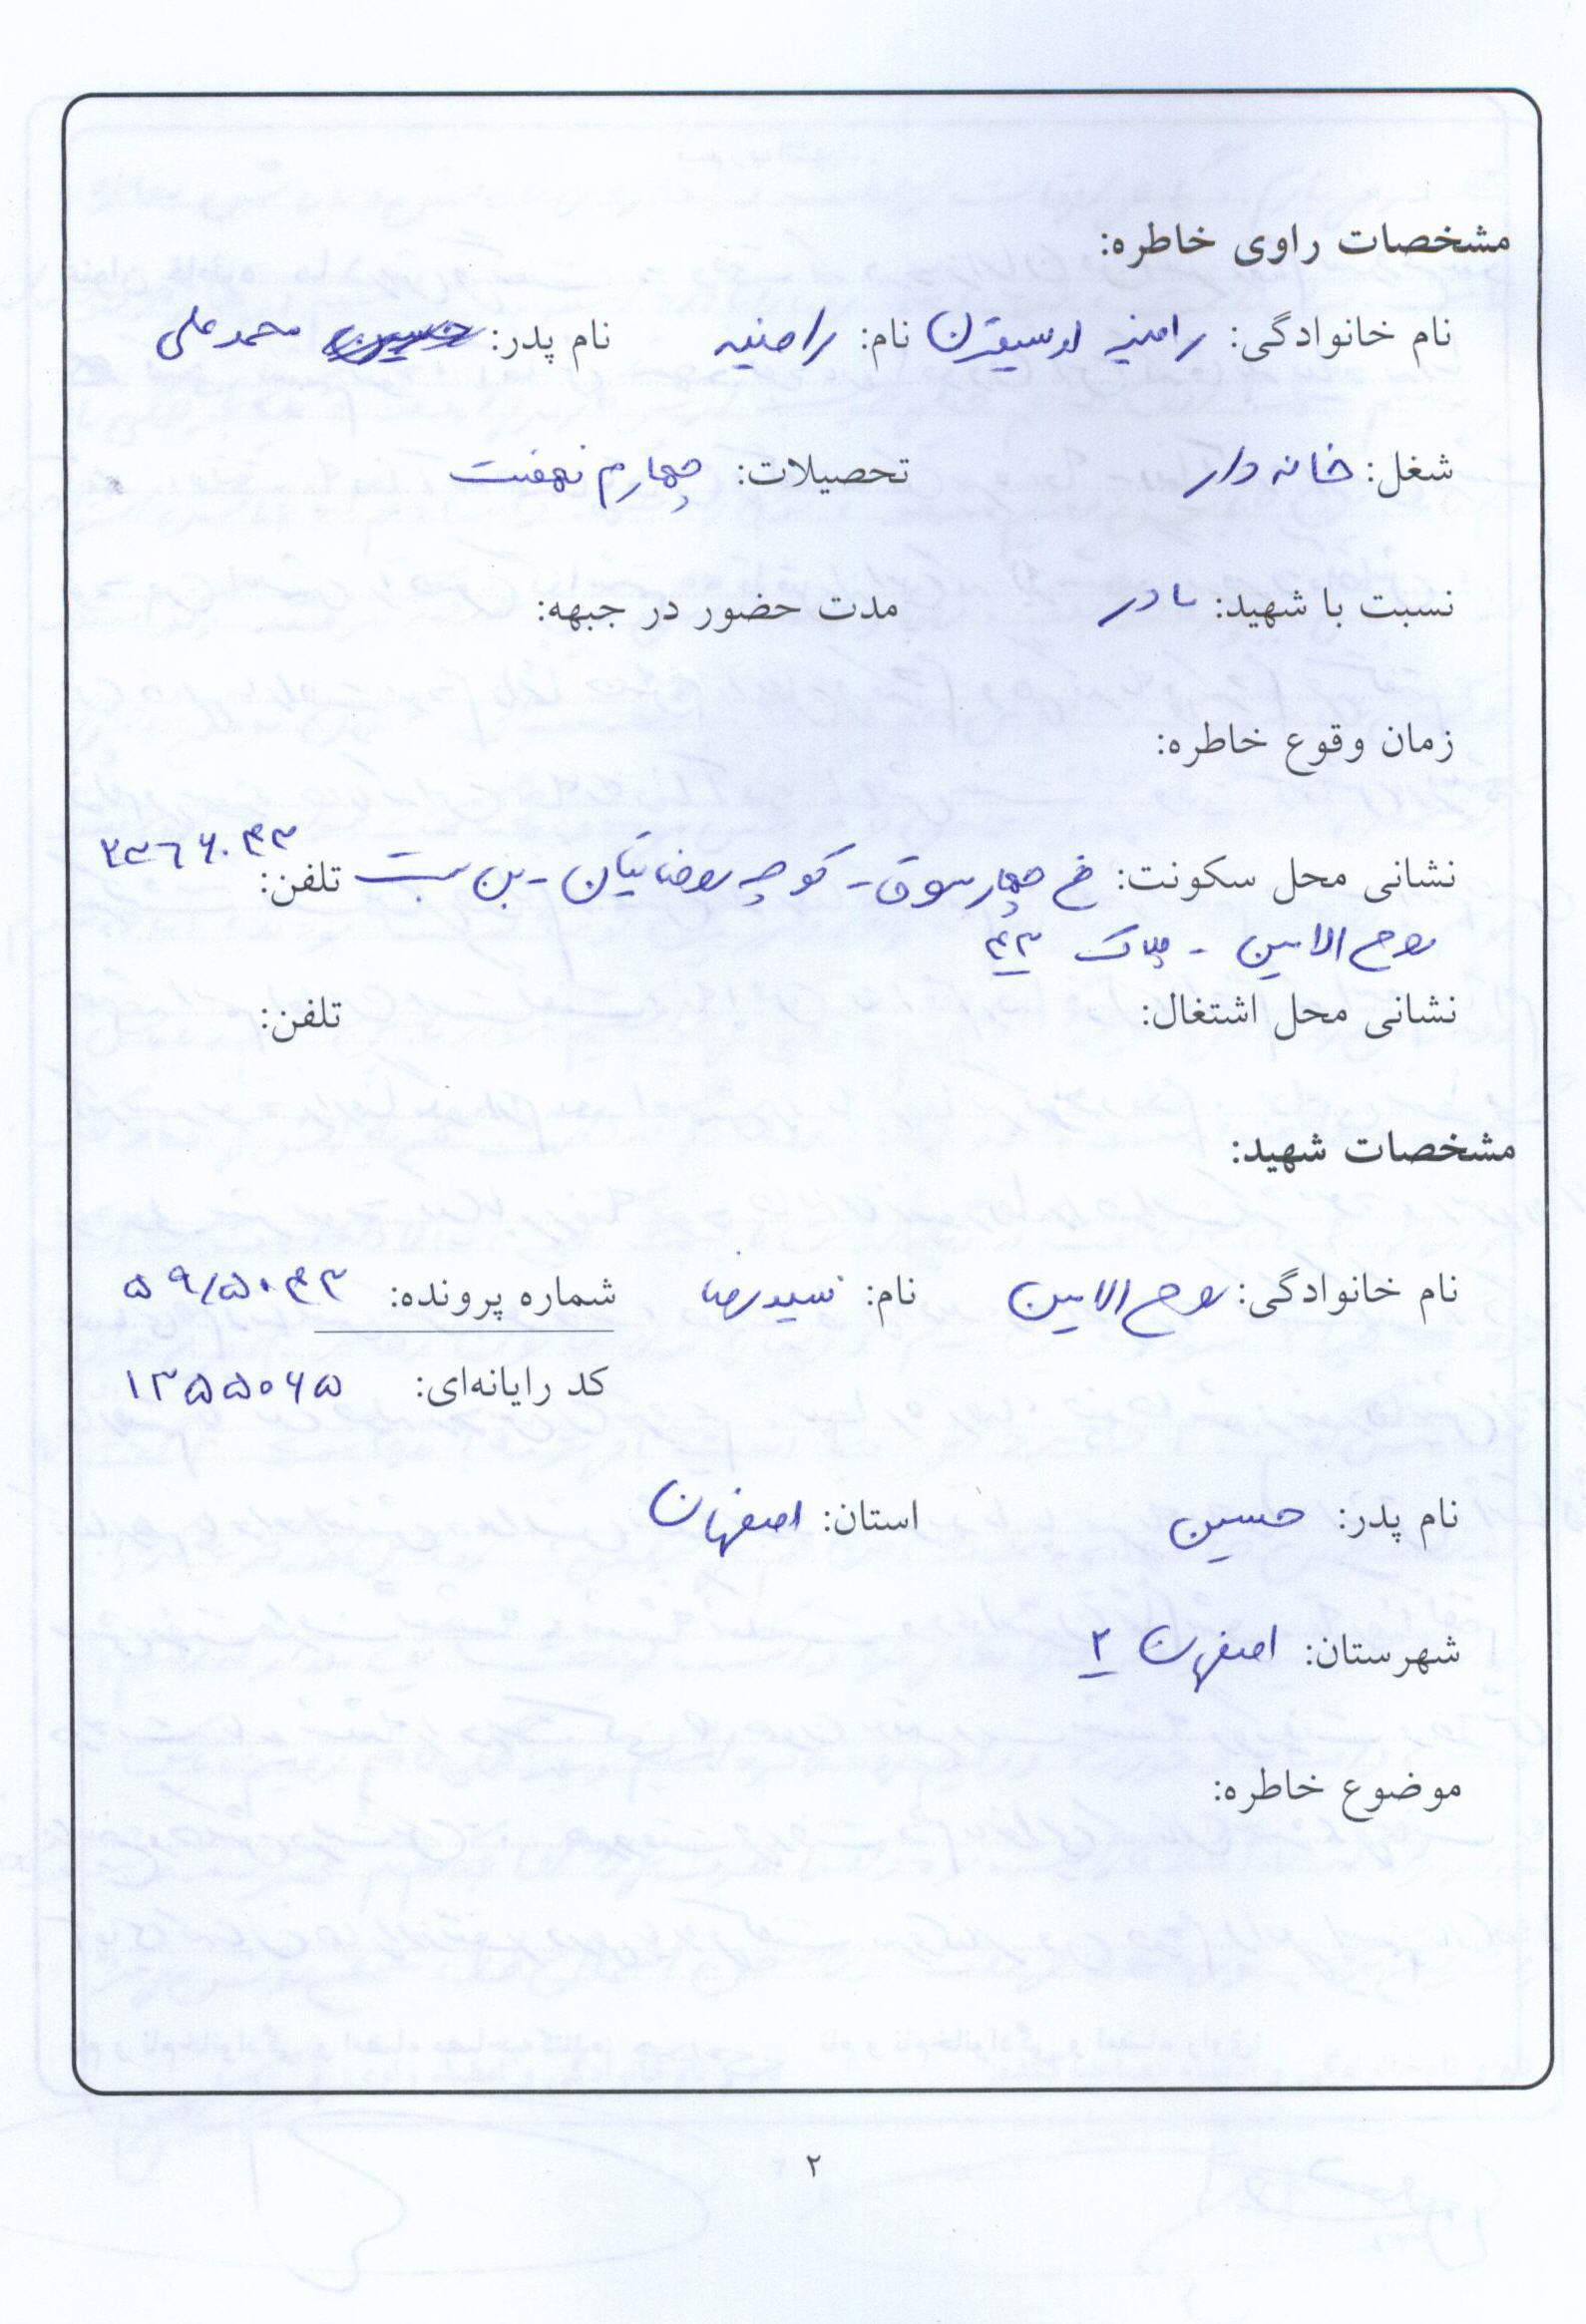 مشخصات راوی خاطره:
نام خانوادگی: نام: راضیه نام پدر: حسین محمد علی
شغل: خانه دار تحصیلات: چهارم نهضت
نسبت با شهید: مادر مدت حضور در جبهه:
زمان وقوع خاطره:
نشانی محل سکونت: خ چهارسوق - کوچه رضائیان - بن بست تلفن: ۲۳۶۶۰۴۳
روح الامین - پلاک ۴۳
نشانی محل اشتغال: تلفن:
مشخصات شهید:
نام خانوادگی: روح الامین نام: سیدرضا شماره پرونده: ۵۹/۵۰۴۳
کد رایانه‌ای: ۱۳۵۵۰۶۵
نام پدر: حسین استان: اصفهان
شهرستان: اصفهان ۲
موضوع خاطره:
۲